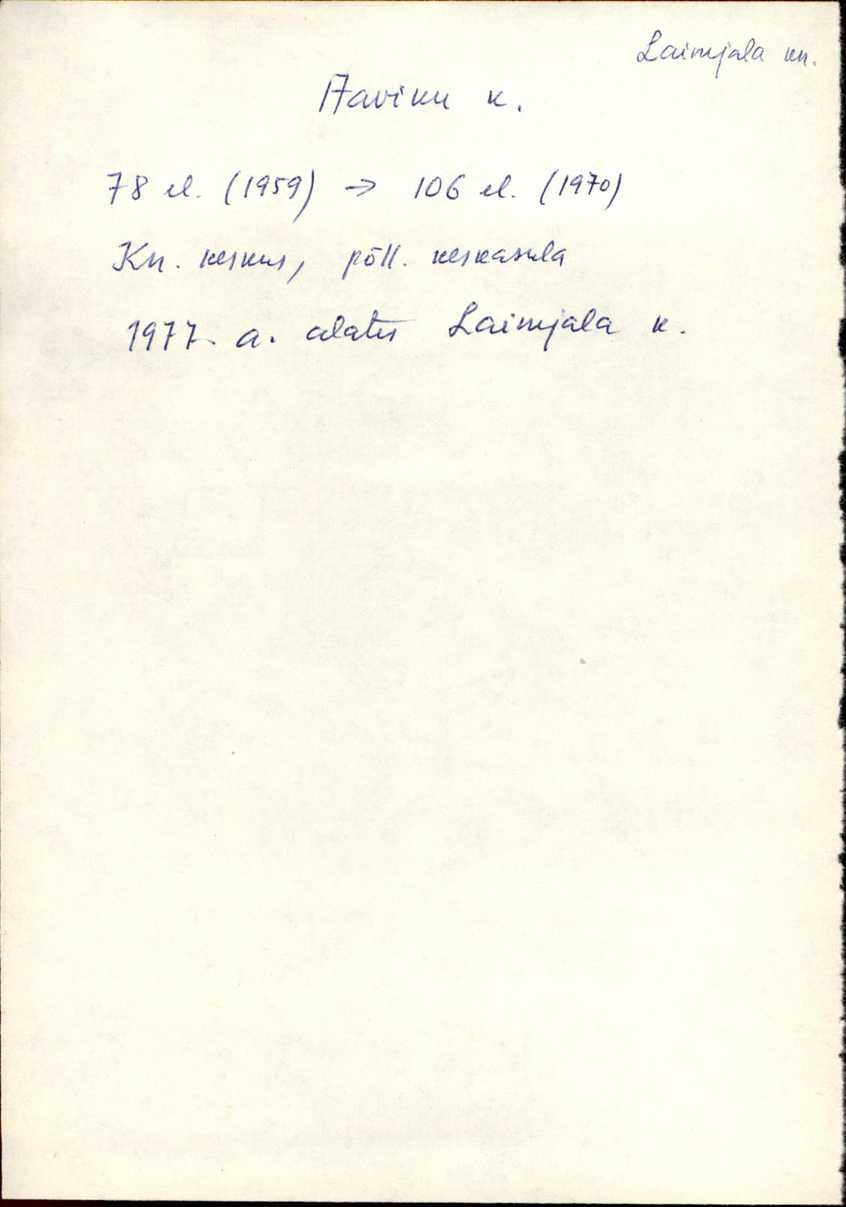 Laimjala kn.
Aaviku k.
78 el. (1959) → 106 el. (1970)
Kn. keskus, põll. keskasula
1977. a. alates Laimjala k.